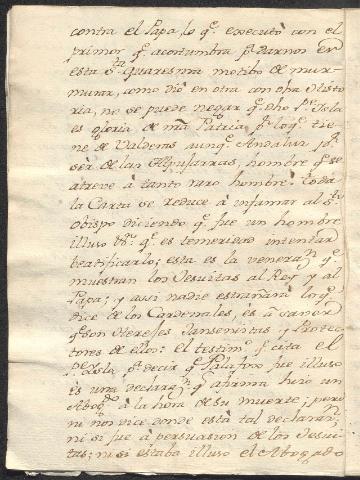 contra el Papa lo q.e executò con el
primor q.e acostumbra p.a darnos en
esta S.ta Quaresma motibo de mur-
murar, como diò en otra con otra Histo
ria, no se puede negar q.e dho P.e Isla
es gloria de n̄ra Patria p.r lo q.e tie
ne de Valderas aunq.e Andaluz p.r
ser de las Alpujarras, hombre q.e se
atreve à tanto raro hombre! toda
la Carta se reduce à infamar al S.r
Obispo diciendo q.e fue un hombre
illuso q.e es temeridad intentar
beatificarlo; esta es la venerac.n q.e
muestran los Jesuitas al Rey y al
Papa; y assi nadie estrañarà lo q.e
dice de los Cardenales, es
q.e son Hereges Jansenistas y Protec
tores de ellos: el testim.o q.e cita el
P.e Isla p.a decir q.e Palafox fue illuso
es una declarac.n q.e afirma hizo un
Abog.do à la hora de su muerte; pero
ni nos dice donde està tal declarac.n
ni si fue à persuasion de los Jesui
tas; ni si estaba illuso el Abogado